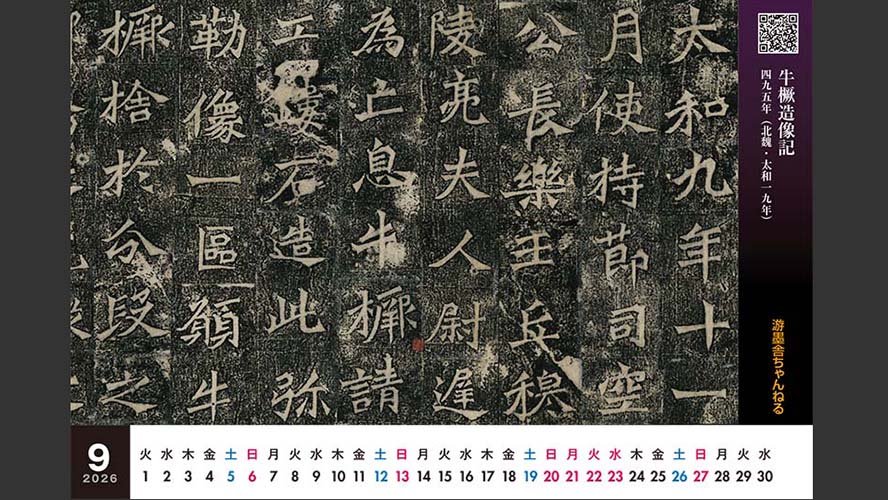 牛橛造像記
四九五年（北魏・太和一九年）
游墨舎ちゃんねる
太和九年十一
月使持節司空
公長樂王丘穆
陵亮夫人尉遲
為亡息牛橛請
工鏤石造此弥
勒像一區願牛
橛捨於分段之
9
2026
火 水 木 金 土 日 月 火 水 木 金 土 日 月 火 水 木 金 土 日 月 火 水 木 金 土 日 月 火 水
1 2 3 4 5 6 7 8 9 10 11 12 13 14 15 16 17 18 19 20 21 22 23 24 25 26 27 28 29 30